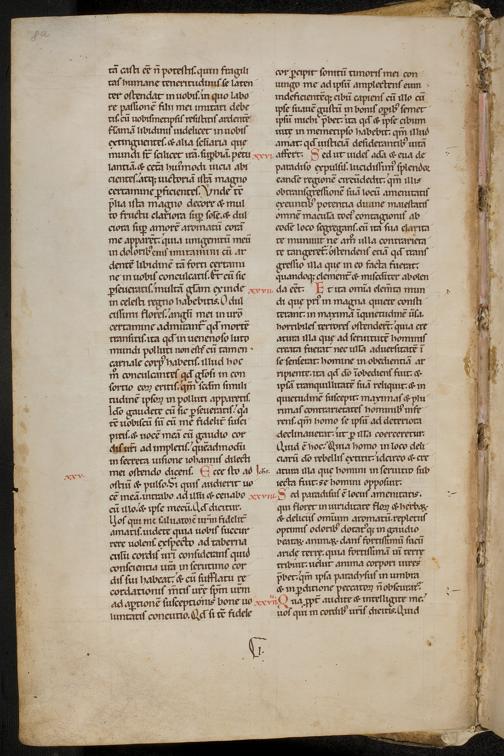 tā casti eē n̄ potestis. quin fragili
tas humane teneritudinis se laten
ter ostendat in uobis. in quo labo
re passionē filii mei imitari debe
tis. cū uobismetipsis resistitis. ardentē
flāmā libidinis uidelicet in uobis
extinguentes. & alia
mundi
certamine ꝓficientes. Unde tā
p̄lia ista magno decore & mul
to fructu clariora sup̄ solē. & dul
ciora sup̄ amorē aromatū corā
me apparēt. quia unigenitū meū
in doloribꝰ eius imitamini cū ar
dentē libidinē tā forti certami
ne in uobis conculcatis. Et cū sic
ꝑseueratis. multā gl̄am exinde
in celesti regno habebitis. O dul
cissimi flores. angl̄i mei in ur̄o
certamine admirantᷣ. qd̄ mortē
transitis. ita qd̄ in uenenoso luto
mundi polluti non estis. cū tamen
carnale corpꝰ habetis. illud hoc
m̄ conculcantes. qd̄ gl̄osi in con
sortio eorū eritis. qm̄ eisdem simili
tudinē ipsorū in polluti apparetis.
Ido gaudete cū sic ꝑseueratis. q̄a
ego uobiscū sū cū me fidelit̄ susci
pitis. & uocē meā cū gaudio cor
dis ur̄i ad impletis. quēadmodū
in secreta uisione iohanni dilecto
meo ostendo dicens. Ecce sto ad
xxv.
ostiū & pulso. Si quis audierit uo
cē meā. intrabo ad illū & cenabo
cū illo. & ipse mecū. Qd̄ dicitur.
Uos qui me saluatorē ur̄m fidelit̄
amatis. uidete quia uobis succur
rere uolens expecto ad taberna
culū cordis ur̄i considerans quid
conscientia ur̄a in scrutinio cor
dis sui habeat. & cū sufflatu re
cordationis mentis ur̄e spm̄ ur̄m
ad aꝑtionē susceptionis bone uo
luntatis concutio. Qd̄ si tē fidele
cor ꝑcipit sonitū timoris mei con
iungo me ad ipsū amplectens eum
indeficientēq; cibū capiens cū illo cū
ipse suauē gustū in bonis opibꝰ semet
ipsū michi p̄bet. ita qd̄ & ipse cibum
uite in memetipso habebit. qm̄ illud
amat qd̄ iusticiā desiderantibꝰ uitā
xxvi.
affert. Sed ut uides adā & eua de
paradiso expulsis. lucidissimꝰ splendor
eandē regionē circūdedit. qm̄ illis
ob transgressionē suā locū amenitatis
exeuntibꝰ potentia diuine maiestatis
omnē maculā toci contagionis ab
eodē loco segregans. eū ita sua clarita
te muniuit. ne am̄ ulla contrarieta
te tangeret. ostendens etiā qd̄ trans
gressio illa que in eo facta fuerat
quandoq; clementer & misericorditer abolen
xxvii.
da eēt. Et ita omīa elem̄ta mun
di que p̄us in magna quiete consti
terant. in maxima inquietudinē
horribiles terrores ostenderūt. quia cre
atura illa que ad seruitutē hominis
creata fuerat. nec ullā aduersitatē ī
se senserat. homine in obedientiā ar
ripiente. ita qd̄ dō inobediens fuit. &
ipsa tranquillitatē suā reliquit. & in
quietudinē suscepit. maximas & plu
rimas contrarietates hominibꝰ infe
rens. qm̄ homo se ipsū ad deteriora
declinauerat. ut ꝑ illā coerceretur.
Quid ē hoc? Quia homo in loco deli
ciarū dō rebellis extitit. idcirco & cre
atura illa que homini in seruitio sub
iecta fuit. se homini opposuit.
xxviii.
Sed paradisus ē locus amenitatis.
qui floret in uiriditate florū & herbarū.
& deliciis omniū aromatū repletus
optimis odoribꝰ dotatᷣq; in gaudio
beatarū animarū. dans fortissimū sucū
aride terre. quia fortissimā uī terre
tribuit. uelut anima corpori uires
p̄bet. qm̄ ipsa paradysus in umbra
& in ꝑditione peccatorū n̄ obscuratᷣ.
xxviiii.
Qua ꝓpt̄ audite & intelligite me.
uos qui in cordibꝰ ur̄is dicitis. Quid